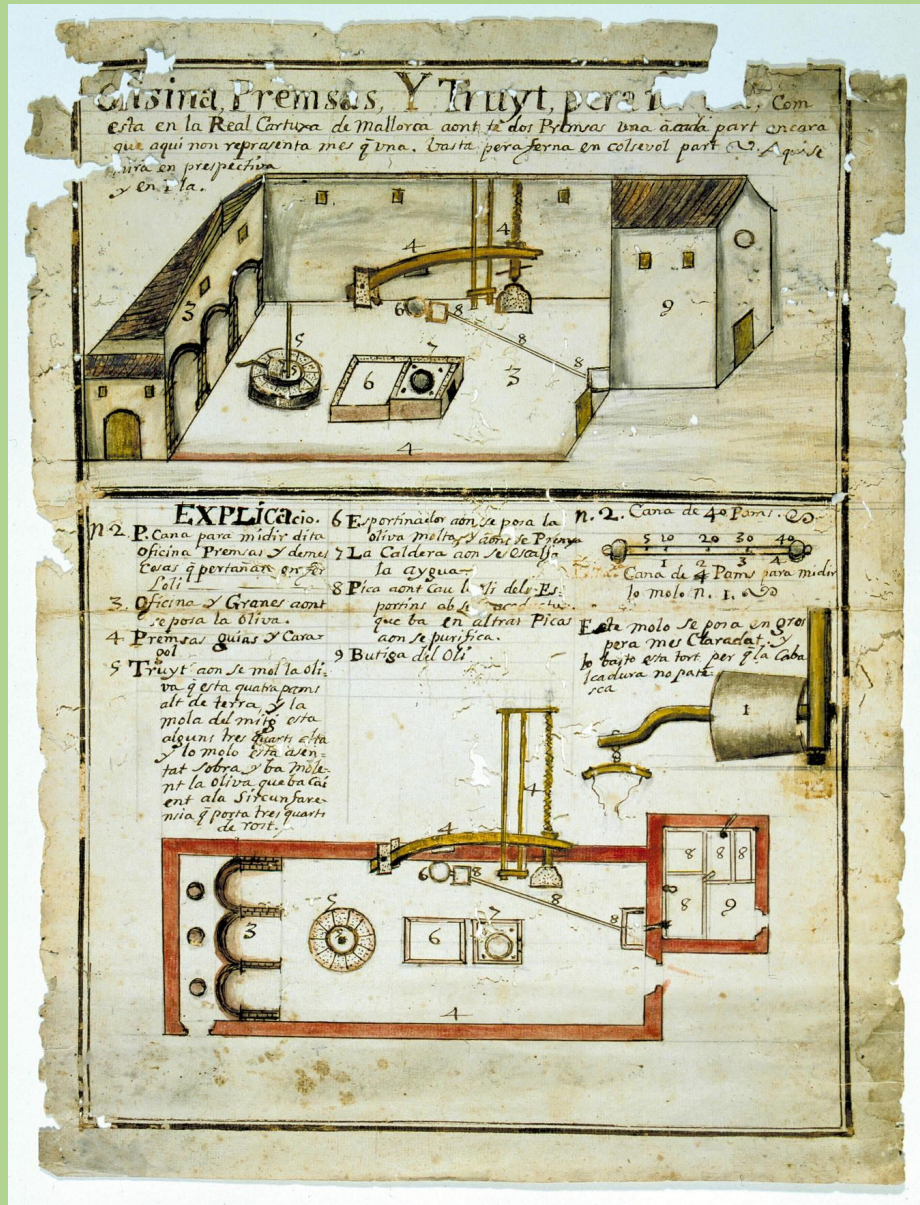 Oficina, Premsas, Y Truyt, pera Com
esta en la Real Cartuxa de Mallorca aont te dos Premsas una acada part encara
que aqui non representa mes q̃ una. basta pera ferna en colsevol part Aqui se
mira en prespectiva
y en
4
4
3
6
8
9
5
7
8
6
3
8
4
EXPLICacio.
n 2. P. Cana para midir dita
oficina Premsas y demes
Cosas q̃ pertañan en fer
Loli
3. Oficina y Granes aont
se posa la oliva.
4 Premsas guias y Cara-
gol
5 Truyt aon se mol la oli-
va q̃ esta quatra pams
alt de terra, y la
mola del mitg esta
alguns tres quarts alta
y lo molo esta asen-
tat sobra y ba mole-
nt la oliva que ba cai
ent ala Sircunfare-
nsia q̃ porta tres quarts
de rost.
6 Esportinador aon se posa la
oliva molta y aons se Prempsa
7 La Caldera aon se escalfa
la aygua
8 Pica aont Cau loli dels Es-
portins ab
que ba en altras Picas
aon se purifica.
9 Butiga del Oli
n. 2. Cana de 40 Pams.
5 10 20 30 40
1 2 3 4
Cana de 4 Pams para midir
lo molo n. 1.
Este molo se posa en gros
pera mes Claradat, y
lo basto esta tort per q̃ la Caba
lcadura no pate
sca
1
4
4
6
8
8
8
8
8
3
5
6
7
8
8
9
4